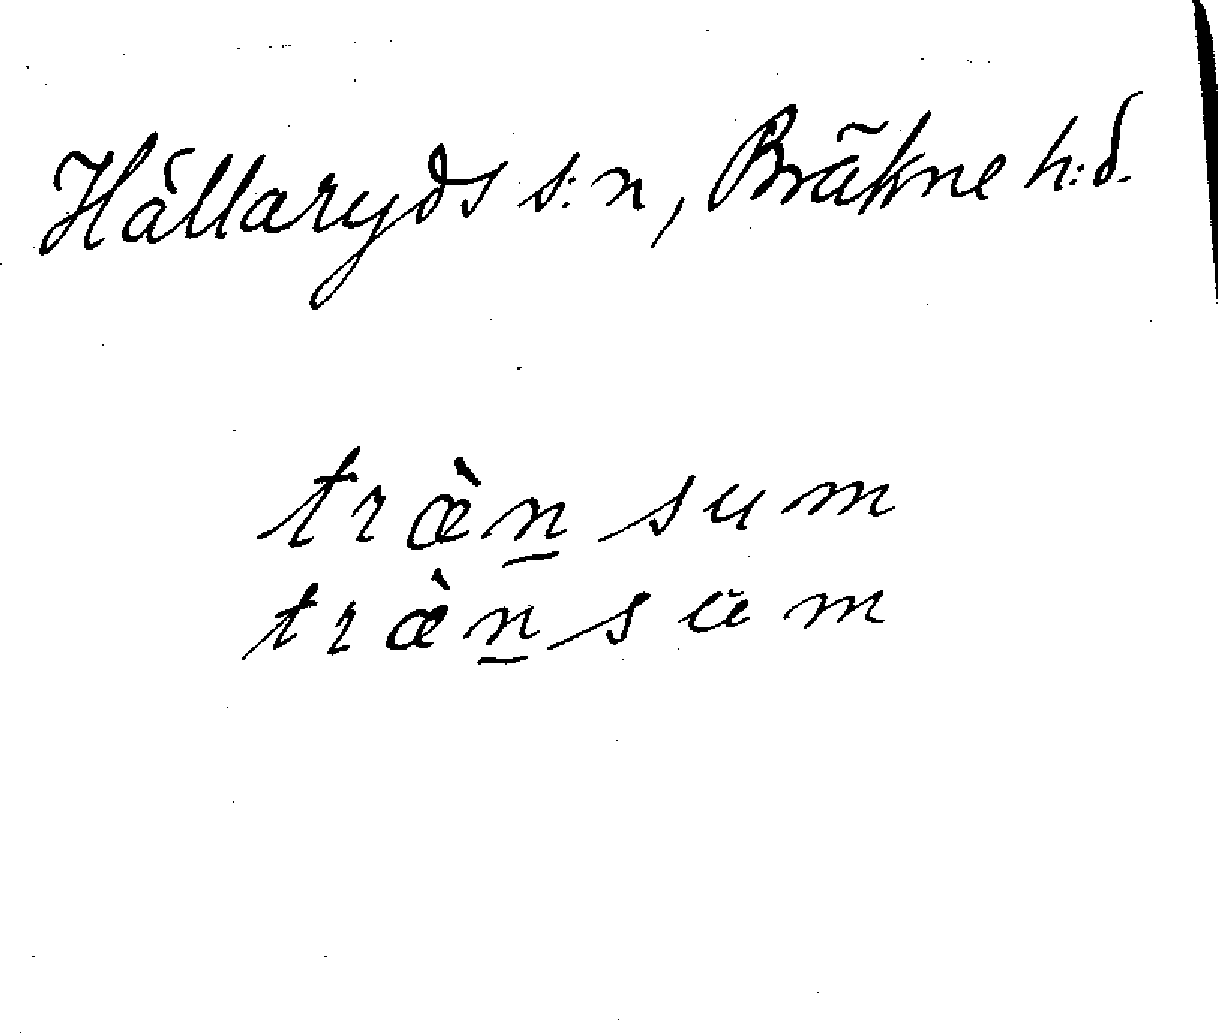 Hällaryds s:n, Bräkne h:d.
træ̀n̲sum
træ̀n̲süm